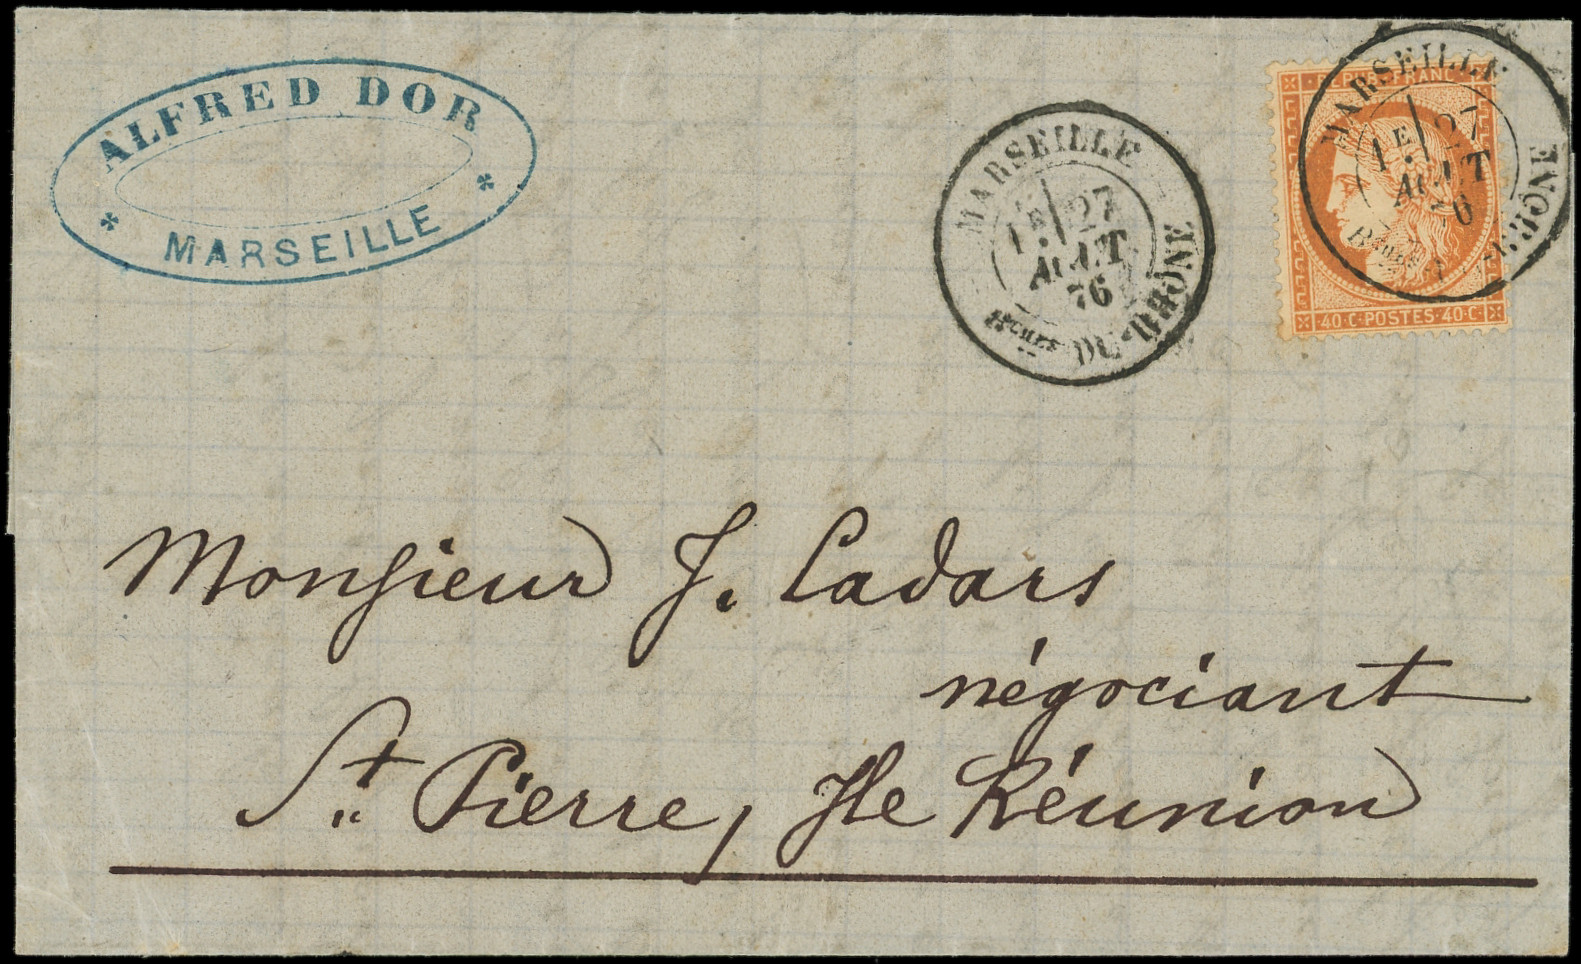 ALFRED DOR
* MARSEILLE *
MARSEILLE
1E 27
AOUT
76
Bches DU-RHÔNE
REPUB-FRANC
MARSEILLE
1E 27
AOUT
76
RHÔNE
40·C·POSTES·40·C
Monsieur J. Cadars
négociant
St Pierre, Ile Réunion